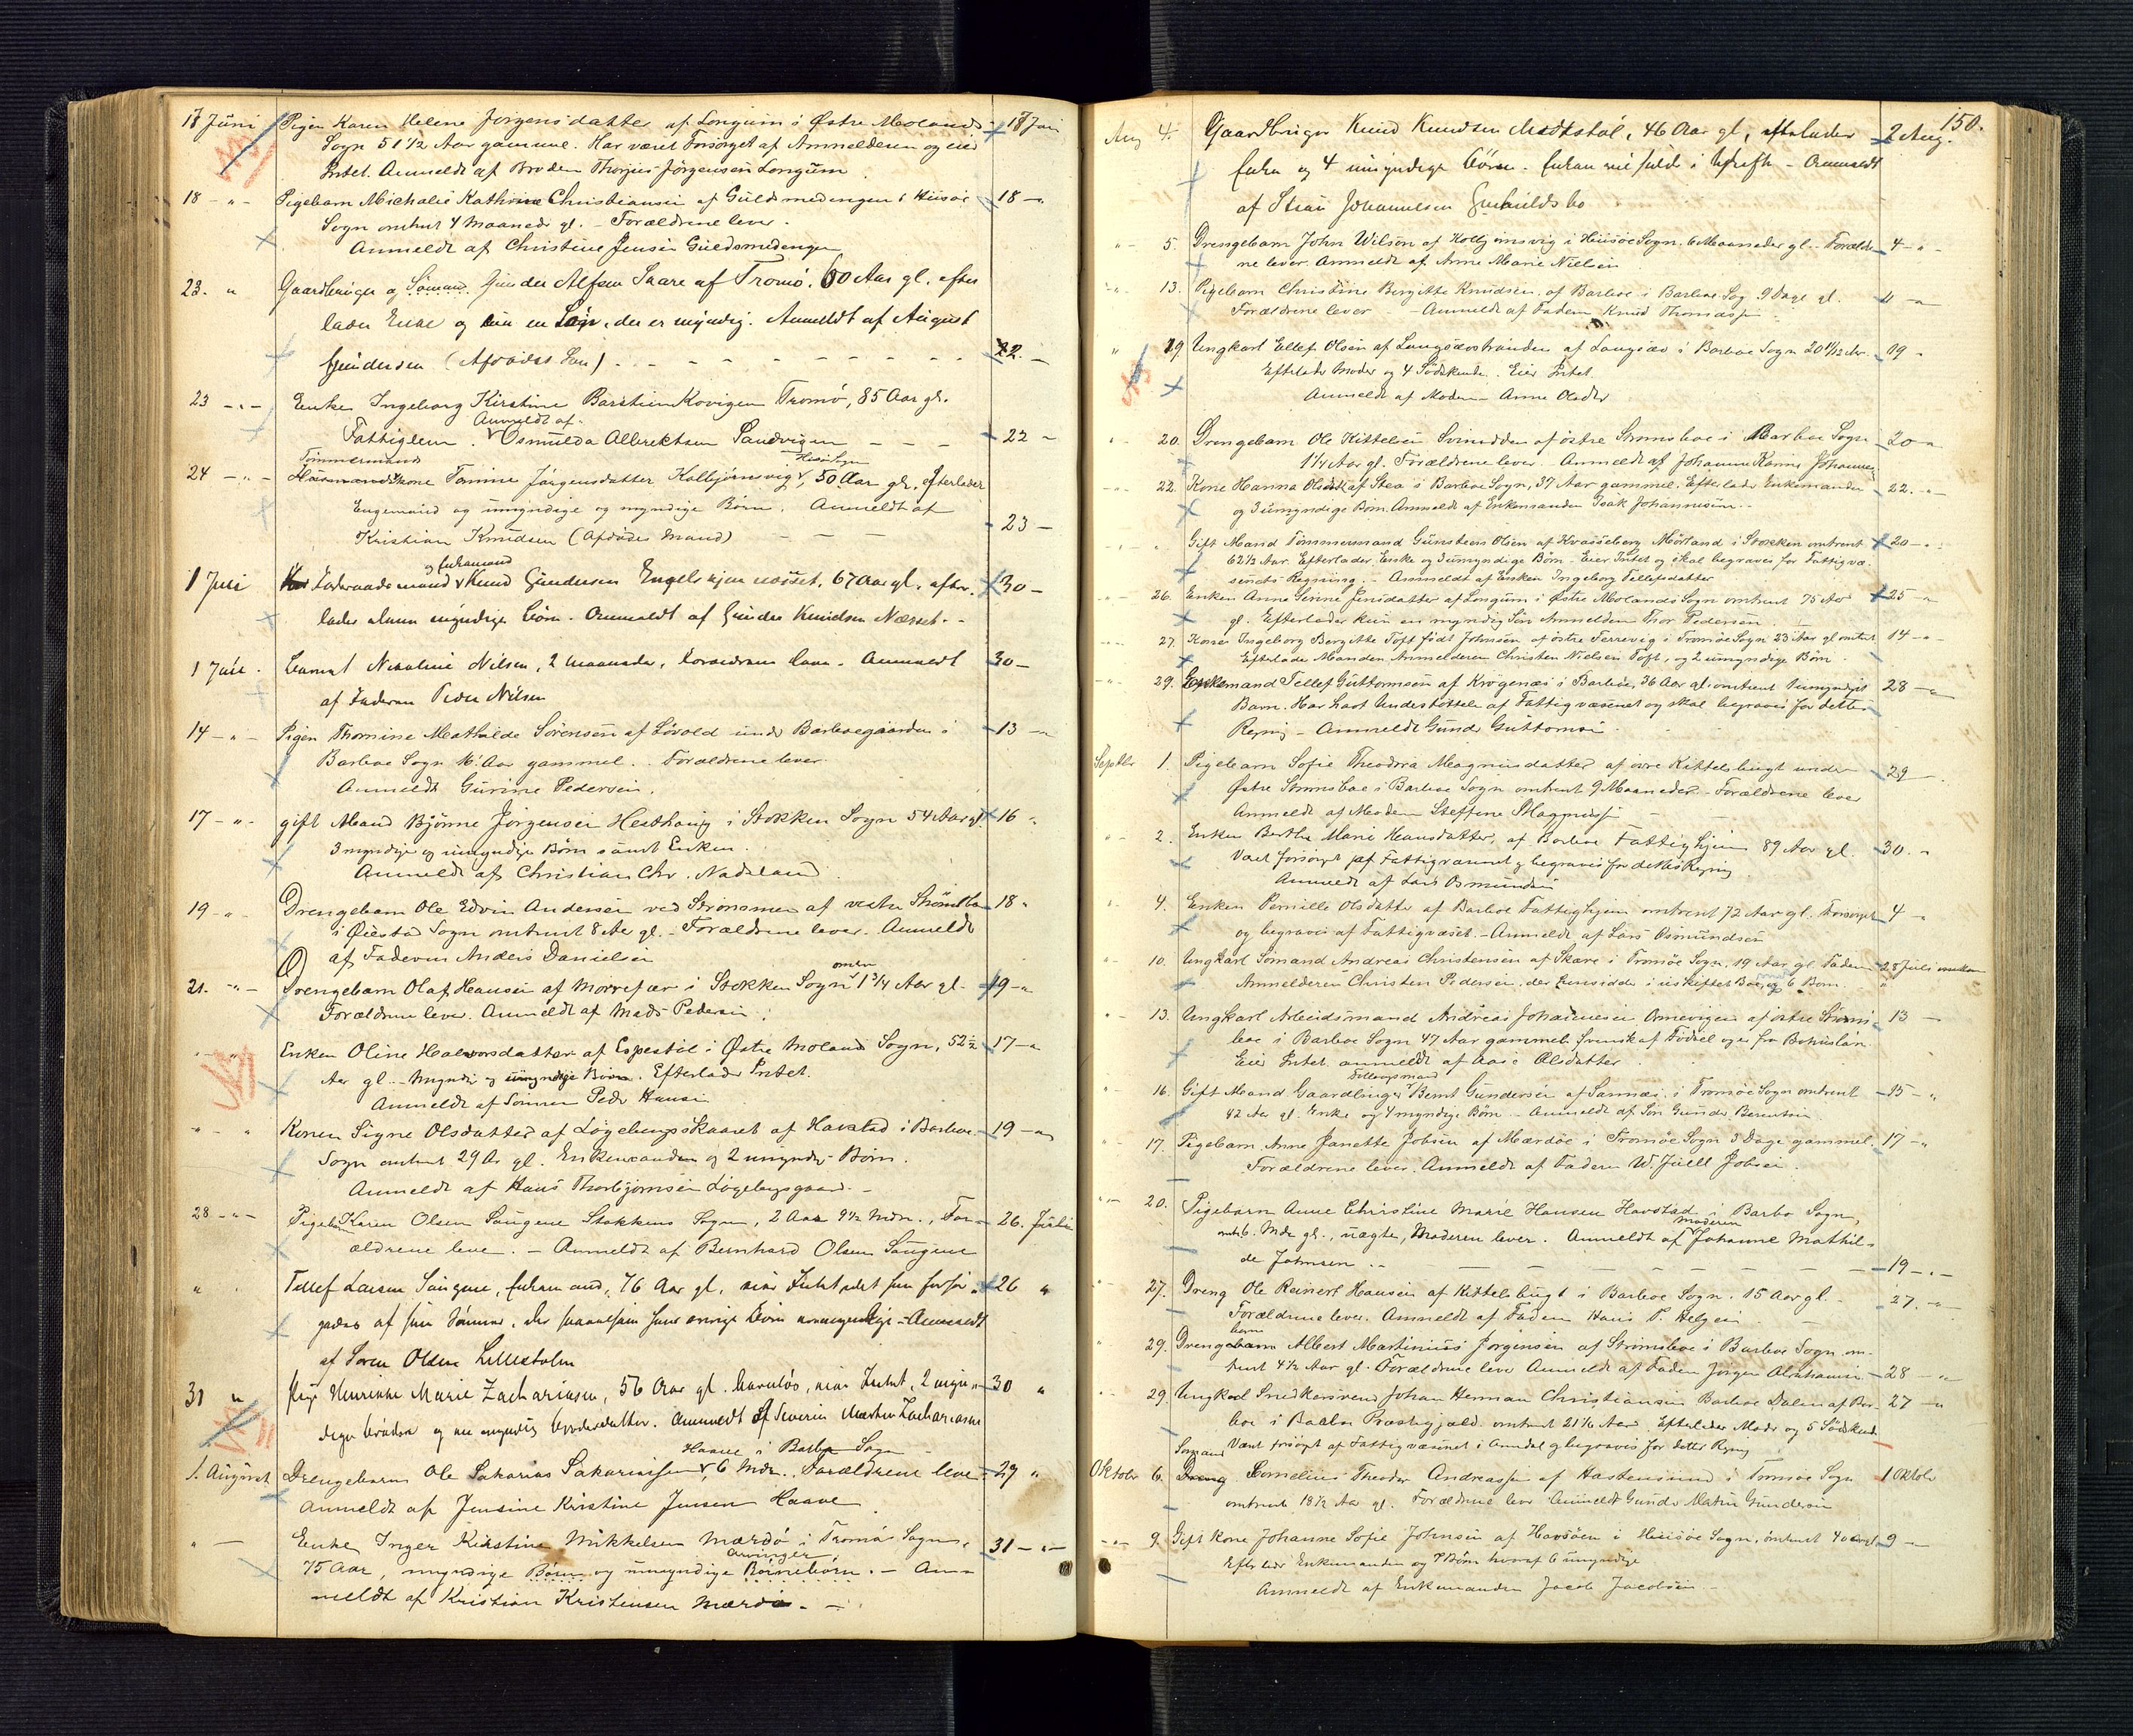 17 Juni Pigen Karen Helene Jørgensdatter af Longum i Østre Molands 18 Juni
Sogn 51 1/2 Aar gammel. Har været Forsørget af Anmelderen og eier
Intet. Anmeldt af Broder Thorjus Jørgensen Longum
18 - " - Pigebarn Michalie Kathrine Christiansen af Guldsmedengen i Hiisøe 18 -
Sogn omtrent 4 Maaneder gl. - Forældrene lever.
Anmeldt af Christine Jensen Guldsmedengen
23. " Gaardbruger og Sømand Gunder Alfsen Skare af Tromø. 60 Aar gl. efter
lader Enke og kun en Søn, der er myndig. Anmeldt af August
Gundersen (Afdødes Søn) - - - 22. -
23 - " - Enke Ingeborg Kirstine Barstein Kovigen Tromø, 85 Aar gl.
Anmeldt af
Fattiglem. Osmulda Albrektsen Sandvigen - - - 22 -
Tømmermand Hisø Sogn
24 - " - Kone Tomine Jørgensdatter Kolbjørnsvig, 50 Aar gl, efterlader
Enkemand og umyndige og myndige Børn. Anmeldt af
Kristian Knudsen (Afdødes Mand) - - 23 -
og Enkemand
1 Juli Laderaadsmand Knud Gundersen Engelskjen næsset, 67 Aar gl. efter 30 -
lader alene myndige Børn. Anmeldt af Gunder Knudsen Næsset. -
1 Juli. Barnet Nicoline Nilsen, 2 maaneder, Forældrene lever. Anmeldt 30 -
af Faderen Peder Nilsen
14 - " - Pigen Thomine Mathilde Sørensen af Løvold under Barboegaarden i 13 - "
Barboe Sogn 16 Aar gammel. Forældrene lever.
Anmeldt Gurine Pedersen.
17 - " - gift Mand Bjørne Jørgensen Hesthaug i Stokken Sogn 54 Aar gl. 16 "
3 myndige og umyndige Børn samt Enken.
Anmeldt af Christian Chr. Nadeland
19 - " - Drengebarn Ole Edvin Andersen ved Strømmen af vestre Strømsbo 18 "
i Øiestad Sogn omtrent 8 Aar gl. - Forældrene lever. Anmeldt
af Faderen Anders Danielsen
omtr
21. - " - Drengebarn Olaf Hansen af Morrefær i Stokken Sogn 1 3/4 Aar gl - 19 - "
Forældrene lever. Anmeldt af Mads Pedersen.
" - " Enken Oline Halvorsdatter af Espestøl i Østre Moland Sogn, 52 1/2 17 - "
Aar gl. - Myndige og umyndige Børn. Efterlader Intet.
Anmeldt af Sønnen Peder Hansen
" - " Konen Signe Olsdatter af Løgebergsskaaret af Havstad i Barboe 19 - "
Sogn omtrent 29 Ar gl. Enkemanden og 2 umyndige Børn.
Anmeldt af Hans Thorbjørnsen Løgebergsgaard. -
28 - " - Pigebarn Karen Olsen Saugene Stokkens Sogn, 2 Aar 9 1/2 Mdr., For- 26. Juli
ældrene leve. - Anmeldt af Bernhard Olsen Saugene
" Tellef Larsen Saugene, Enkemand, 76 Aar gl, eier Intet 26 "
gedes af sine Sønner, der
af Søren Olsen Lillestølen
31 " Pige Henrikke Marie Zachariasen, 56 Aar gl. barnløs, eier Intet, 2 myn- 30 "
dige brødre og en myndig broderdatter. Anmeldt af Severin Martin Zachariasen
Haave i Barbo Sogn
1. August Drengebarn Ole Sakarias Sakariassen, 6 Mdr., Forældrene leve 29 "
Anmeldt af Jensine Kirstine Jensen Haave
" - Enke Inger Kirstine Mikkelsen Mærdø i Tromø Sogn, 31 - " -
arvinger
75 Aar, myndige Børn og umyndige Børnebørn. - An-
meldt af Kristian Kristensen Mærdø. -
150.
Aug 4. Gaardbruger Knud Knudsen, 46 Aar gl, efterlader 2 Aug.
Enke og 4 umyndige Børn. - Anmeldt
af Stian Johannesen Gunhildsbo
" - 5 Drengebarn John Wilson af Kolbjørnsvig i Hiisøe Sogn. 6 Maaneder gl. - Forældre 4 - "
ne lever. Anmeldt af Anne Marie Nielsen
" 13. Pigebarn Christine Bergitte Knudsen, af Barboe i Barboe Sog. 9 Dage gl. 11 - "
Forældrene lever - Anmeldt af Fadern Knud Thomassen
" 19 Ungkarl Ellef Olsen af Langsævstranden af Langsæv i Barboe Sogn 20 1/12 Aar. 19 -
Efterlader Moder og 4 Sødskende. Eier Intet.
Anmeldt af Moderen Anne Olsdtr
" 20. Drengebarn Ole Kittelsen Svinodden af østre Strømsboe i Barboe Sogn 20 - "
1 1/4 Aar gl. Forældrene lever. Anmeldt af Johanne Karine Johannes
" - 22. Kone Hanna Olsdatt. af Stea i Barboe Sogn, 37 Aar gammel. Efterlader Enkemanden 22. - "
og 3 umyndige Børn. Anmeldt af Enkemanden Isak Johannesen. -
" " Gift Mand Tømmermand Gunsteen Olsen af Kvasseberg Mørland i Stokken omtrent 20 - "
62 1/2 Aar. Efterlader Enke og 3 umyndige Børn - Eier Intet og skal begraves for Fattigvæ-
senets Regning. - Anmeldt af Enken Ingeborg Tellefsdatter
" 26. Enken Anne Serine Jensdatter af Longum i Østre Molands Sogn omtrent 75 Aar 25 - "
gl. Efterlader kun en myndig Søn Anmelderen Thor Pedersen
" 27. Kone Ingeborg Bergitte Toft født Johnsen af østre Ferrevig i Tromøe Sogn 23 Aar gl omtrent 14 - "
Efterlader Manden Anmelderen Christen Nielsen Toft, og 2 umyndige Børn
" - 29. Enkemand Tellef Guttormsen af Krøgenæs i Barboe, 36 Aar gl. omtrent 1 umyndigt 28 - "
Barn. Har havt Understøttelse af Fattigvæsenet og skal begraves for dettes
Regning - Anmeldt Gunder Guttormsen
Septbr 1. Pigebarn Sofie Theodora Magnusdatter af øvre Kittelsbugt under 29 -
Østre Strømsboe i Barboe Sogn omtrent 9 Maaneder. - Forældrene lever
Anmeldt af Moderen Steffine Magnussen
" 2. Enken Berthe Marie Hansdatter, af Barboe Fattighjem 89 Aar gl. 30. "
Været forsørget af Fattigvæsenet og begraves for dettes Regning
Anmeldt af Lars Osmundsen
" 4. Enken Pernille Olsdatter af Barboe Fattighjem omtrent 72 Aar gl. Forsørget 4 "
og begraves af Fattigvæset. - Anmeldt af Lars Osmundsen
" 10. Ungkarl Sømand Andreas Christensen af Skare i Tromøe Sogn. 19 Aar gl. Faderen 28 Juli omkom
Anmelderen Christen Pedersen, der hensidder i uskiftet Bo, og 6 Børn.
" 13. Ungkarl Arbeidsmand Andreas Johannesen Ormevigen af østre Strøms 13 -
boe i Barboe Sogn 47 Aar gammel Svensk af Fødsel og er fra Bohuslän
Eier Intet anmeldt af Aase Olsdatter
" 16. Gift Mand Gaardbruger Bernt Gundersen af Sannæs i Tromøe Sogn omtrent 15 - "
42 Aar gl. Enke og 4 myndige Børn. - Anmeldt af Søn Gunder Berentsen
" 17. Pigebarn Anne Janette Jobsen af Mærdøe i Tromøe Sogn 3 Dage gammel. 17 - "
Forældrene lever. Anmeldt af Faderen W. Juell Jobsen
" - 20. Pigebarn Anne Christine Marie Hansen Havstad i Barbo Sogn,
Moderen
omtr 6. Mdr gl., uægte, Moderen lever. Anmeldt af Johanne Mathil-
de Johnsen. - - - - 19 - " -
" 27. Dreng Ole Reinert Hansen af Kittelsbugt i Barboe Sogn. 15 Aar gl. 27. - "
Forældrene lever. Anmeldt af Faderen Hans P. Helgesen
" 29. Drengebarn Albert Martinius Jørgensen af Strømsboe i Barboe Sogn om-
trent 4 1/2 Aar gl. Forældrene lever Anmeldt af Faderen Jørgen Abrahamsen 28 - "
" 29. Ungkarl Snedkersvend Johan Herman Christiansen Barboe Dalen af Bar- 27 - "
boe i Barbo Præstegjæld. omtrent 21 1/2 Aar. Efterlader Moder og 5 Sødskende
Været forsørget af Fattigvæsenet i Arendal og begraves for dettes Regning
Sømand
Oktober 6. Dreng Cornelius Theodor Andreassen af Hastensund i Tromøe Sogn 1 Oktobr
omtrent 18 1/2 Aar gl. Forældrene lever Anmeldt Gunder Martin Gundersen
- " - 9 Gift Kone Johanne Sofie Johnsen af Havsøen i Hiisøe Sogn, omtrent 40 Aar gl. 9 -
Efterlader Enkemanden og 7 Børn hvoraf 6 umyndige
Anmeldt af Enkemanden Jacob Jacobsen -